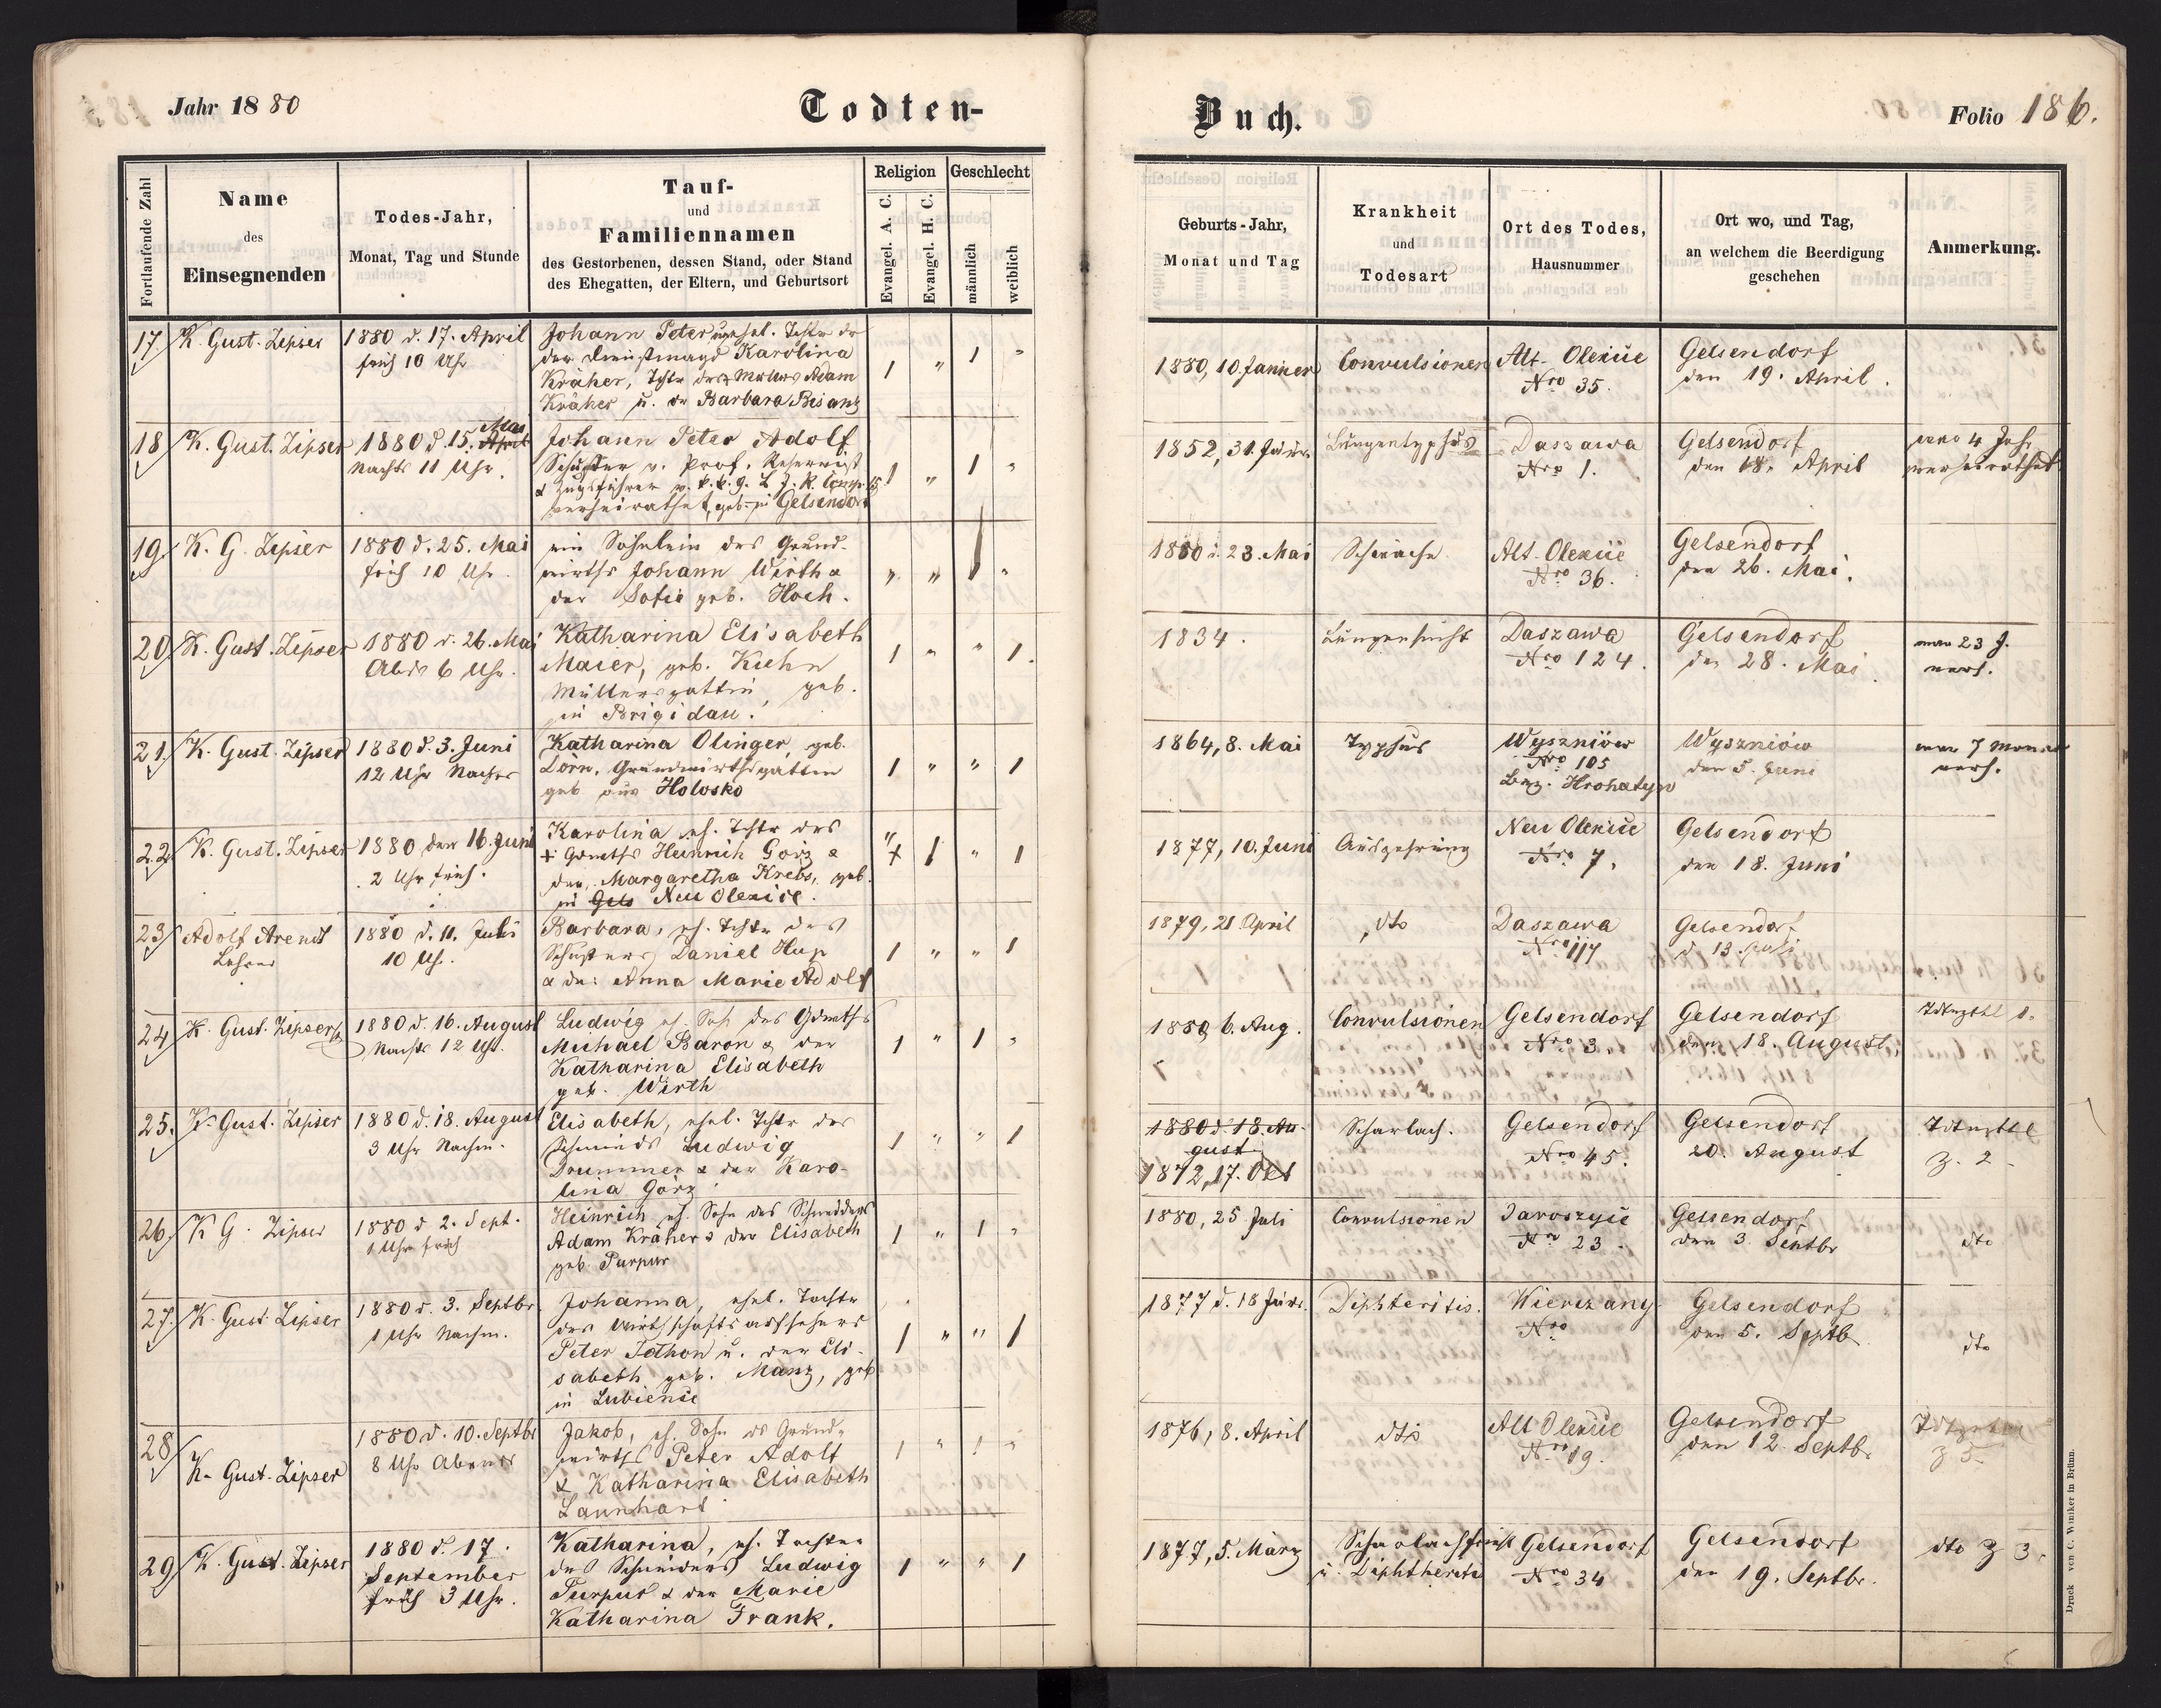 Jahr 1880
Todten-
Fortlaufende Zahl
Name
des
Einsegnenden
Todes-Jahr,
Monat, Tag und Stunde
Tauf-
und
Familiennamen
des Gestorbenen, dessen Stand, oder Stand
des Ehegatten, der Eltern, und Geburtsort
Religion
Evangel. A. C.
Evangel. H. C.
Geschlecht
männlich
weiblich
17.
K. Gust. Zipser
1880 d. 17. April
früh 10 Uhr
Johann Peter unehel. der
der Dienstmagd Karolina
Kräher, Tchtr des Adam
Kräher u. der Barbara Bisanz
1 " 1 "
18
K. Gust. Zipser
Mai
1880 d. 15. April
Nachts 11 Uhr.
Johann Peter Adolf
Schuster v. Prof. Reservist
& Zugsführer
verheirathet, geb. in Gelsendorf
1 " 1 "
19.
K. G. Zipser
1880 d. 25. Mai
früh 10 Uhr.
ein Söhnlein des Grund-
wirths Johann Wirth &
der Sofie geb. Hoch.
" " 1 "
20.
K. Gust. Zipser
1880 d. 26. Mai
Abds 6 Uhr.
Katharina Elisabeth
Maier, geb. Kuhn
Müllersgattin, geb.
in Brigidau.
1 " " 1.
21.
K. Gust. Zipser
1880 d. 3. Juni
12 Uhr Nachts
Katharina Olinger, geb.
Dorn, Grundwirthsgattin
geb aus Holosko
1 " " 1
22.
K. Gust. Zipser
1880 den 16. Juni
2 Uhr früh.
Karolina, eh. Tchtr des
+ Heinrich Görz &
der Margaretha Krebs, geb.
in Gels Neu Olexice.
" 1 " 1
23
Adolf Arendt
Lehrer
1880 d. 11. Juli
10 Uhr.
Barbara, eh. Tchtr des
Schusters Daniel Hup
& der Anna Marie Adolf
1 " " 1
24
K. Gust. Zipser
1880 d. 16. August
Nachts 12 Uhr.
Ludwig eh. Sohn des
Michael Baron & der
Katharina Elisabeth
geb. Wirth
1 " 1 "
25.
K. Gust. Zipser
1880 d. 18. August
3 Uhr Nachm.
Elisabeth, ehel. Tchtr des
Schmieds Ludwig
Drummer & der Karo-
lina Görz
1 " " 1
26.
K G. Zipser
1880 d. 2. Sept.
1 Uhr früh
Heinrich eh. Sohn des Schneiders
Adam Kräher & der Elisabeth
geb. Purpur
1 " 1 "
27.
K. Gust. Zipser
1880 d. 3. Septbr.
1 Uhr Nachm.
Johanna, ehel. Tochter
des Wirthschaftsaufsehers
Peter Jothon u. der Eli-
sabeth geb. Manz, geb.
in Lubience
1 " " 1
28
K. Gust. Zipser
1880 d. 10. Septbr
8 Uhr Abends
Jakob, eh. Sohn des Grund-
wirths Peter Adolf
& Katharina Elisabeth
Launhart
1 " 1 "
29
K. Gust. Zipser
1880 d. 17.
September
früh 3 Uhr.
Katharina, eh. Tochter
des Schneiders Ludwig
Purpur & der Marie
Katharina Frank.
1 " " 1
Buch.
Folio 186.
Geburts-Jahr,
Monat und Tag
Krankheit
und
Todesart
Ort des Todes,
Hausnummer
Ort wo, und Tag,
an welchem die Beerdigung
geschehen
Anmerkung.
1880, 10. Jänner
Convulsionen
Alt-Olexice
Nro 35.
Gelsendorf
den 19. April.
1852, 31. Jänr.
Lungentyphus
Daszawa
Nro 1.
Gelsendorf
den 18. April
war 4 Jahr
verheirathet
1880 d. 23. Mai
Schwäche.
Alt-Olexice
Nro 36.
Gelsendorf
den 26. Mai.
1834.
Lungensucht
Daszawa
Nro 124.
Gelsendorf
den 28. Mai.
war 23 J.
verh.
1864, 8. Mai
Typhus
Wyszniów
Nro 105
Bez. Hrohatyn
Wyszniów
den 5. Juni
war 7 Monate
verh.
1877, 10. Juni
Auszehrung
Neu Olexice
Nro 7.
Gelsendorf
den 18. Juni
1879, 21 April
dto
Daszawa
Nro 117
Gelsendorf
d. 13. Juli
1880, 6. Aug.
Convulsionen
Gelsendorf
Nro 3.
Gelsendorf
den 18. August.
1880 d. 18. Au-
gust
1872, 17. Okt
Scharlach.
Gelsendorf
Nro 45.
Gelsendorf
20. August
Z. 2
1880, 25. Juli
Convulsionen
Jaroszyce
Nro 23.
Gelsendorf
den 3. Septbr
dto
1877 d. 18 Jänr.
Diphteritis.
Wierczany
Nro
Gelsendorf
den 5. Septb.
dto
1876, 8. April
dto
Alt Olexice
Nro 19.
Gelsendorf
den 12. Septbr.
Z 5.
1877, 5. März
u. Diphtheritis
Gelsendorf
Nro 34
Gelsendorf
den 19. Septbr.
dto Z 3.
Druck von C. Winiker in Brünn.